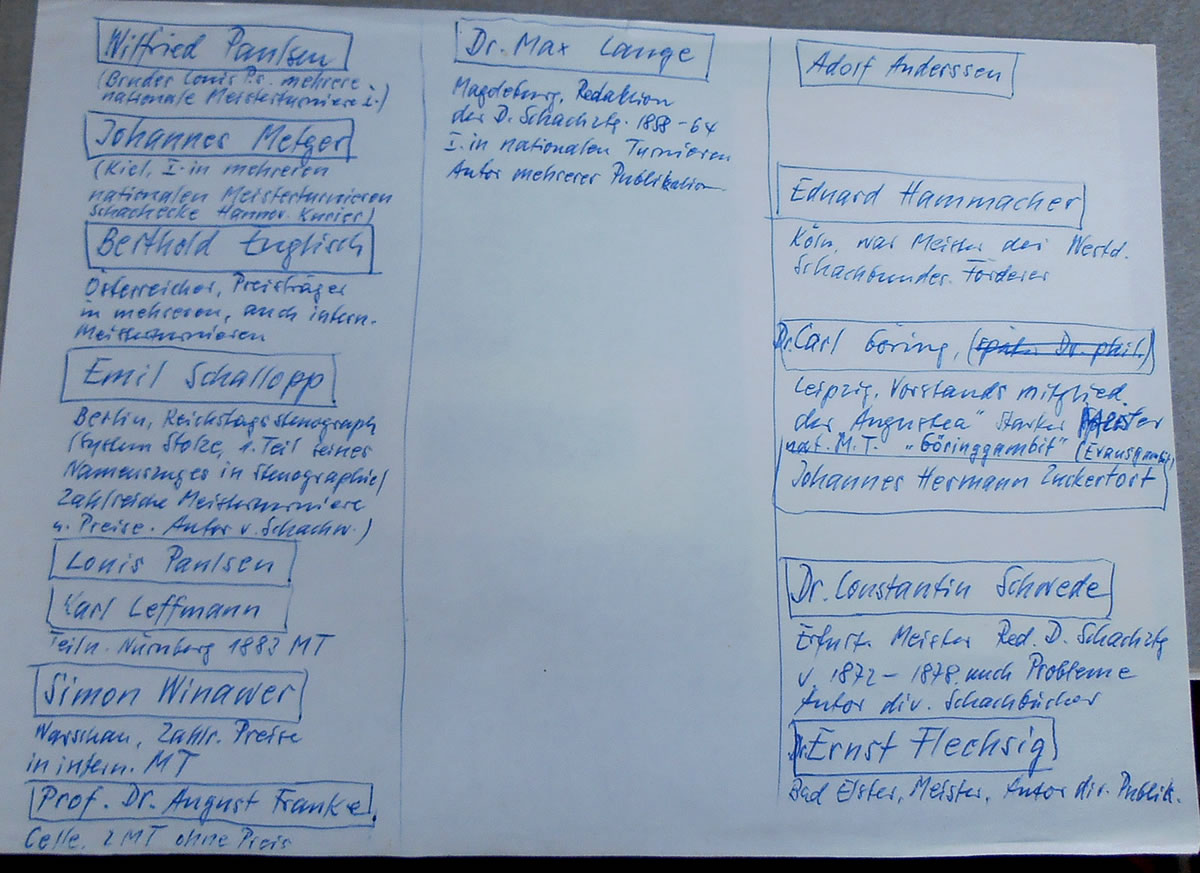 Wilfried Paulsen
(Bruder Louis P.s. mehrere
nationale Meisterturniere
Johannes Metger
(Kiel, I. in mehreren
nationalen Meisterturnieren
Schachecke Hannov. Kurier)
Berthold Englisch
Österreicher, Preisträger
in mehreren, auch intern.
Meisterturnieren
Emil Schallopp
Berlin, Reichstagsstenograph
(System Stolze, 1. Teil seines
Namenszuges in Stenographie)
Zahlreiche Meisterturniere
u. Preise. Autor v. Schachw.)
Louis Paulsen
Karl Leffmann
Teiln. Nürnberg 1883 MT
Simon Winawer
Warschau, Zahlr. Preise
in intern. MT
Prof. Dr. August Franke.
Celle, 2 MT ohne Preis
Dr. Max Lange
Magdeburg, Redaktion
der D. Schachztg. 1858-64
I. in nationalen Turnieren
Autor mehrerer Publikation
Adolf Anderssen
Eduard Hammacher
Köln, war Meister des Westd.
Schachbundes. Förderer
Dr. Carl Göring, (später Dr. phil.)
Leipzig, Vorstandsmitglied
der "Augustea" Starker Meister
nat. M.T. "Göringgambit"
Johannes Hermann Zuckertort
Dr. Constantin Schwede
Erfurt. Meister Red. D. Schachztg
v. 1872-1878, auch Probleme
Autor div. Schachbücher
Dr. Ernst Flechsig
Bad Elster, Meister, Autor div. Publik.